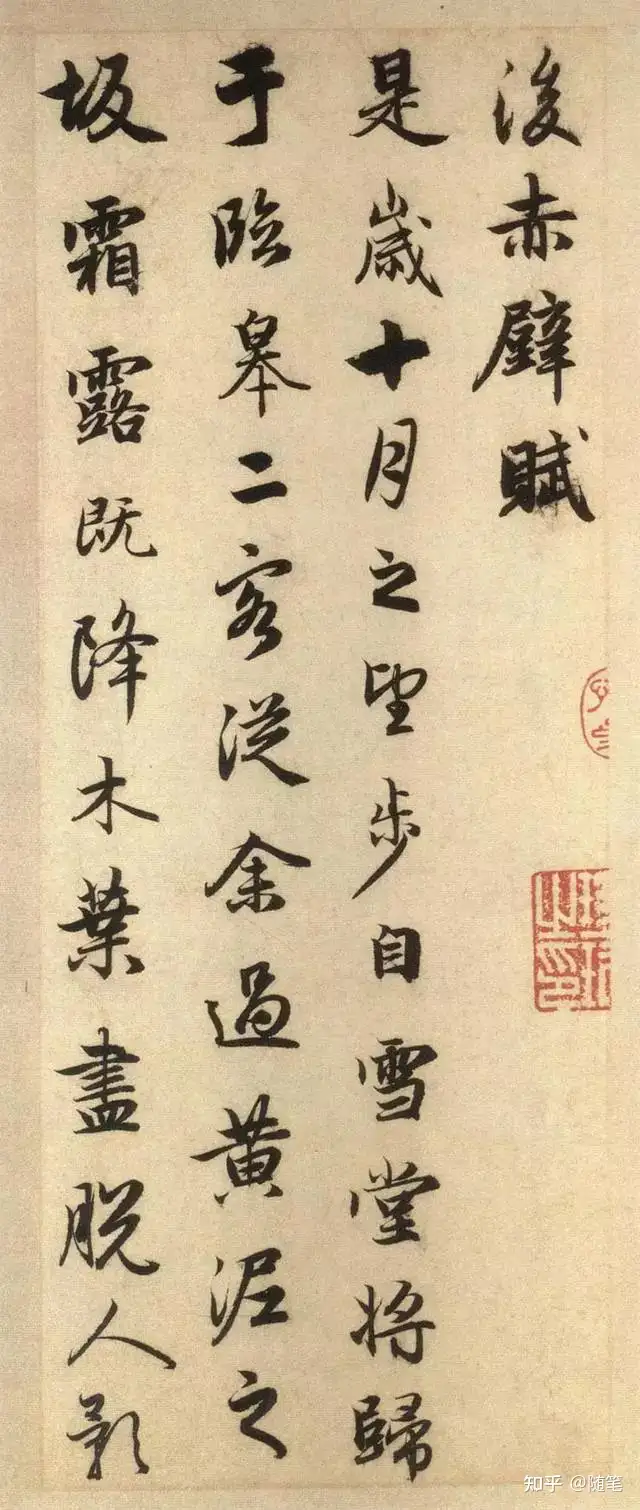 後赤壁賦
是歲十月之望步自雪堂將歸
于臨皋二客從余過黃泥之
坂霜露既降木葉盡脫人影
知乎 @随笔